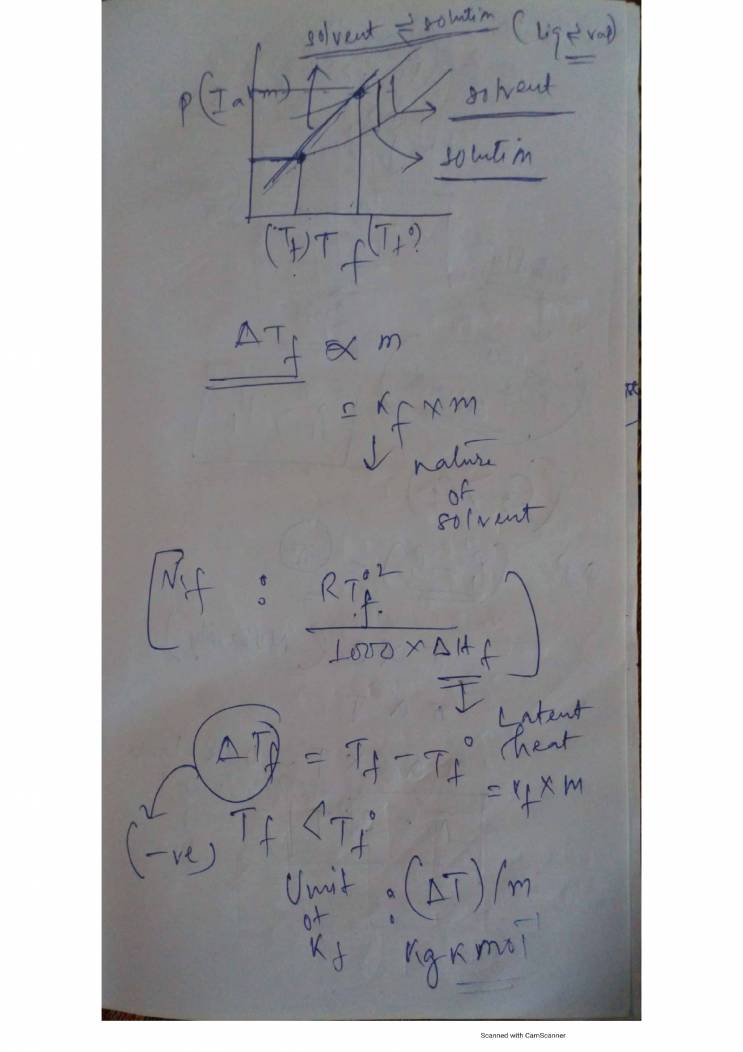 solvent ⇌ solution (liq ⇌ vap)
P(1 atm)
solvent
solution
(Tf) T f (Tf°)
ΔTf ∝ m
= Kf × m
↓ nature
of
solvent
[ : RTf°² / 1000 × ΔHf ]
↓ Latent
heat
ΔTf = Tf - Tf°
= Kf × m
(-ve) Tf < Tf°
Unit : (ΔT)/m
of
Kf Kg K mol⁻¹
Scanned with CamScanner